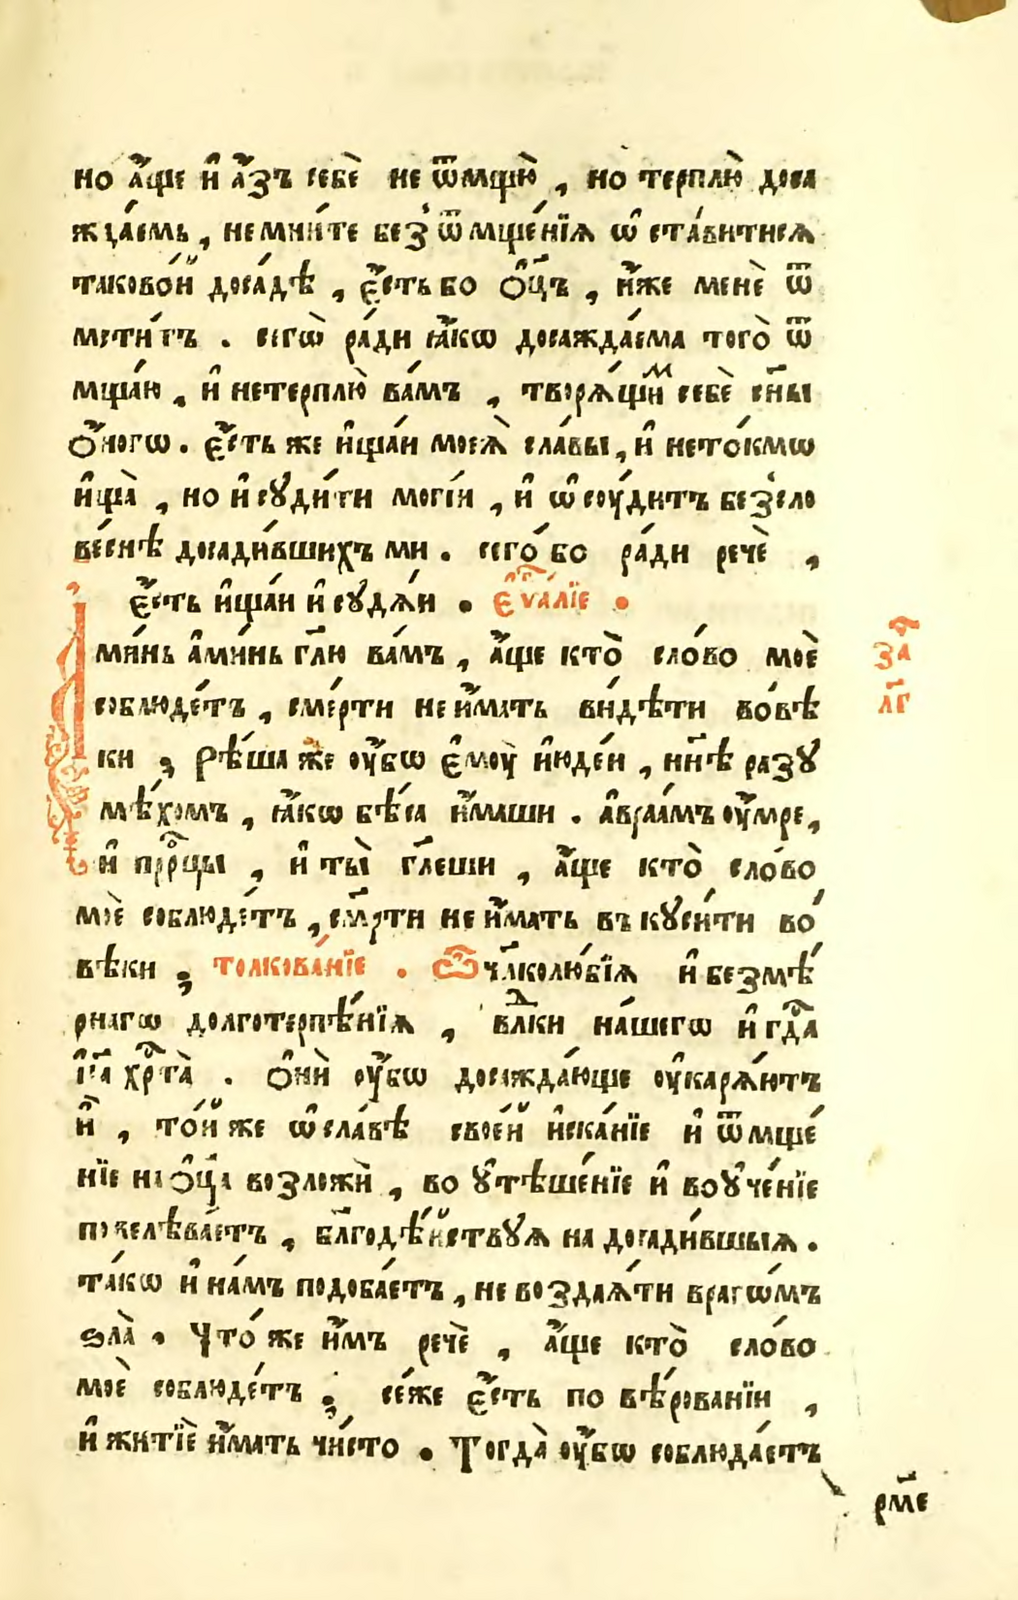 но а҆́ще и҆ а҆́зъ себѐ не ѿмщꙋ̀, но терплю̀ доса
жда́емь, немни́те без̾ ѿмще́нїѧ ѡ҆ ста́витисѧ
таково́й доса́дѣ, є҆́сть бо ѻ҆ц҃ъ, и҆́же менѐ ѿ
мсти́тъ. сегѡ̀ ра́ди ꙗ҆́кѡ досажда́ема того̀ ѿ
мща́ю, и҆ нетерплю̀ ва́мъ, творѧ́щиⷨ себѐ сн҃ы
ѻ҆́ногѡ. є҆́сть же и҆ща́й моеѧ̀ сла́вы, и҆ нето́кмѡ
и҆ща̀, но и҆ сꙋди́ти моги́й, и҆ ѡ҆сѹ́дитъ без̾сло
ве́снѣ досади́вшихъ ми. сего́ бо ра́ди речѐ,
є҆́сть и҆ща́й и҆ сꙋдѧ́й. є҆ѵⷢ҇а́лїе.
Ами́нь а҆ми́нь гл҃ю ва́мъ, а҆́ще кто̀ сло́во моѐ
соблюде́тъ, сме́рти не и҆́мать ви́дѣти вовѣ́
ки; рѣ́ша же ᲂу҆́бѡ є҆мѹ̀ и҆юде́и, нн҃ѣ разꙋ
мѣ́хомъ, ꙗ҆́кѡ бѣ́са и҆́маши. а҆враа́мъ ᲂу҆́мре,
и҆ прⷪ҇ро́цы, и҆ ты̀ гл҃еши, а҆́ще кто̀ сло́во
моѐ соблюде́тъ, см҃рти не и҆́мать въ кꙋси́ти во́
вѣки; толкова́нїе. Ѿ чл҃колю́бїѧ и҆ безмѣ́
рнагѡ долготерпѣ́нїѧ, влⷣки на́шегѡ и҆ гдⷭ҇а
і҆и҃са хрⷭ҇та̀. ѻ҆нѝ ᲂу҆́бѡ досажда́юще ᲂу҆карѧ́ютъ
и҆̀, то́й же ѡ҆ сла́вѣ свое́й и҆ска́нїе и҆ ѿмще́
нїе на ѻ҆ц҃а̀ возложѝ, во ᲂу҆тѣше́нїе и҆ воᲂу҆че́нїе
повелѣва́етъ, бл҃годѣ́йствꙋѧ на досади́вшыѧ.
та́кѡ и҆ на́мъ подоба́етъ, не воздаѧ́ти врагѡ́мъ
ѕла̀. Что́ же и҆̀мъ речѐ, а҆́ще кто̀ сло́во
моѐ соблюде́тъ; се́же є҆́сть по вѣ́рованїи,
и҆ житїѐ и҆́мать чи́сто. Тогда̀ ᲂу҆́бѡ соблюда́етъ
за
л҃г
рм҃е